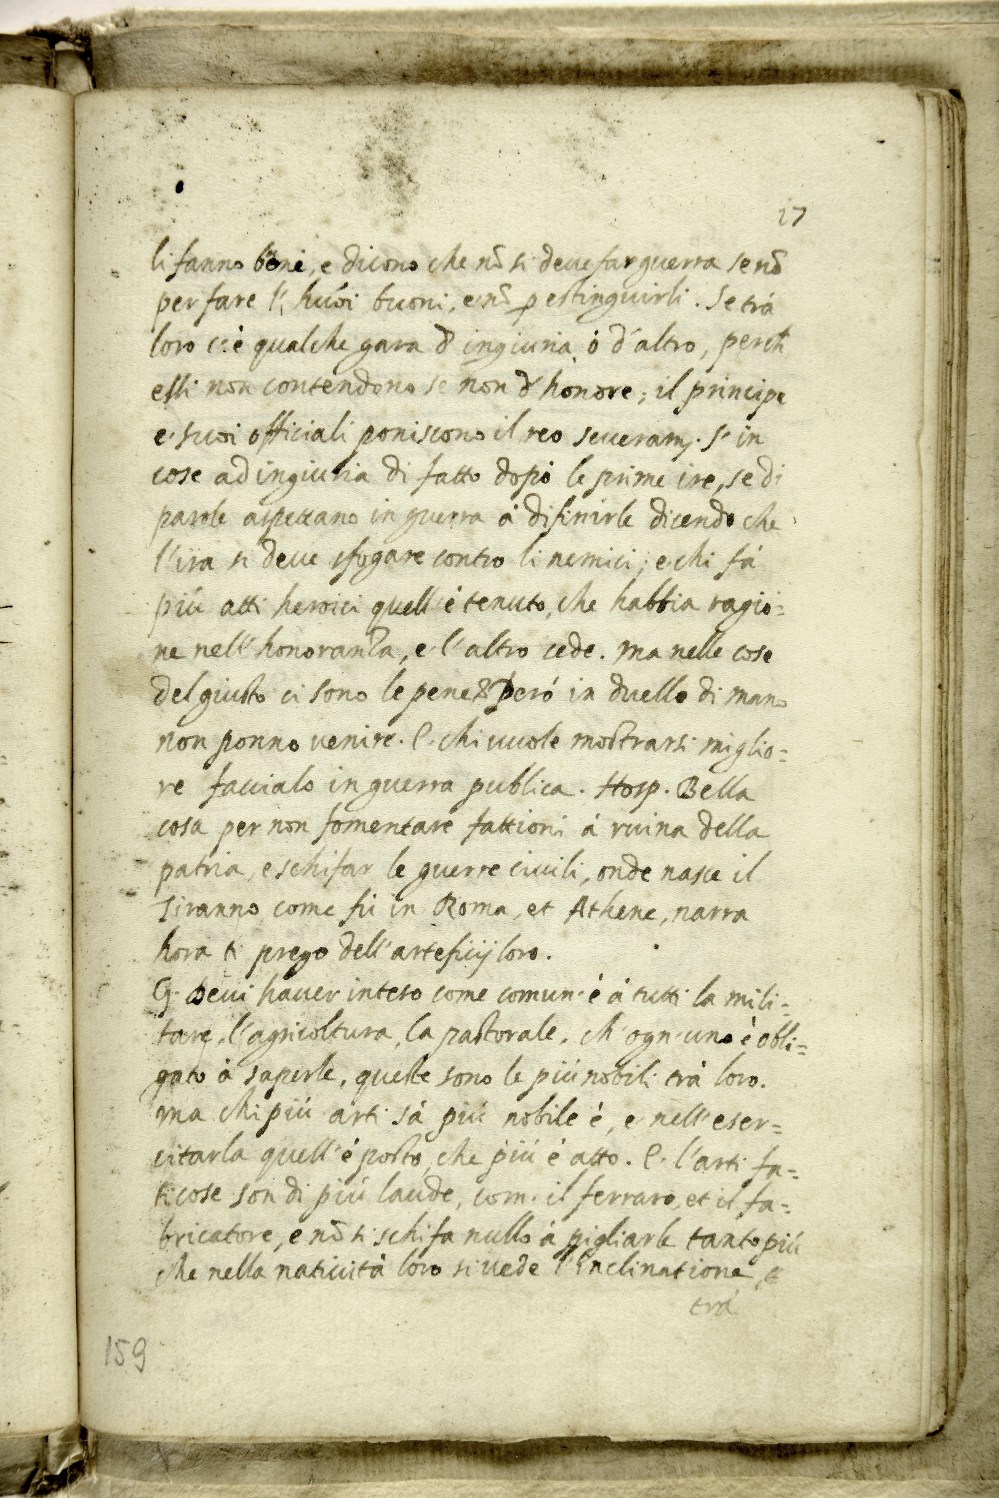 27
li fanno bene, e dicono che nõ si deue far guerra se nõ
per fare l'huõi buoni, e nõ p estinguirli. Se trà
loro c'è qualche gara d' ingiuria ò d'altro, perch
essi non contendono se non d' honore; il principe
e suoi officiali poniscono il reo seueram. s' in
cose ad ingiuria di fatto dopò le prime ire, se di
parole aspettano in guerra à difinirle dicendo che
l'ira si deue sfogare contro li nemici; e chi fà
più atti heroici quell'è tenuto, che habbia ragio=
ne nell'honoranza, e l'altro cede. Ma nelle cose
del giusto ci sono le pene & Però in duello di mano
non ponno uenire. E chi uuole mostrarsi miglio=
re faccialo in guerra publica. Hosp. Bella
cosa per non fomentare fattioni à ruina della
patria, e schifar le guerre ciuili, onde nasce il
Tiranno come fù in Roma, et Athene, narra
hora ti prego dell'arteficij loro.
G. Deui hauer inteso come comun' è à tutti la mili=
tare, l'agricoltura, la pastorale. ch' ogn'uno è obli=
gato à saperle, queste sono le più nobili trà loro.
Ma chi più arti sà più nobile è, e nell'eser=
citarla quell'è posto, che più è atto. E l'arti fa=
ticose son di più laude, com' il ferraro, et il fa=
bricatore, e nõ si schifa nullo à pigliarle tanto più
che nella natiuità loro si uede l'Inclinatione, e
trà
159